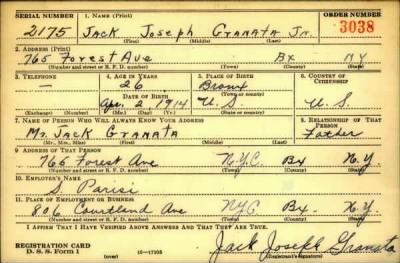 SERIAL NUMBER 1. NAME (Print) ORDER NUMBER
2175 Jack Joseph Granata Jr. 3038
(First) (Middle) (Last)
2. ADDRESS (Print)
765 Forest Ave Bx N.Y.
(Number and street or R. F. D. number) (Town) (County) (State)
3. TELEPHONE 4. AGE IN YEARS 5. PLACE OF BIRTH 6. COUNTRY OF CITIZENSHIP
— 26 Bronx
DATE OF BIRTH (Town or county)
Apr. 2, 1914 U.S. U.S.
(Mo.) (Day) (Yr.) (State or country)
7. NAME OF PERSON WHO WILL ALWAYS KNOW YOUR ADDRESS 8. RELATIONSHIP OF THAT PERSON
Mr. Jack Granata Father
(Mr., Mrs., Miss) (First) (Middle) (Last)
9. ADDRESS OF THAT PERSON
765 Forest Ave N.Y.C. Bx N.Y.
(Number and street or R. F. D. number) (Town) (County) (State)
10. EMPLOYER'S NAME
S. Parisi
11. PLACE OF EMPLOYMENT OR BUSINESS
806 Courtland Ave NYC Bx. N.Y.
(Number and street or R. F. D. number) (Town) (County) (State)
I AFFIRM THAT I HAVE VERIFIED ABOVE ANSWERS AND THAT THEY ARE TRUE.
REGISTRATION CARD
D. S. S. Form 1 (over) 16—17105 Jack Joseph Granata
(Registrant's signature)